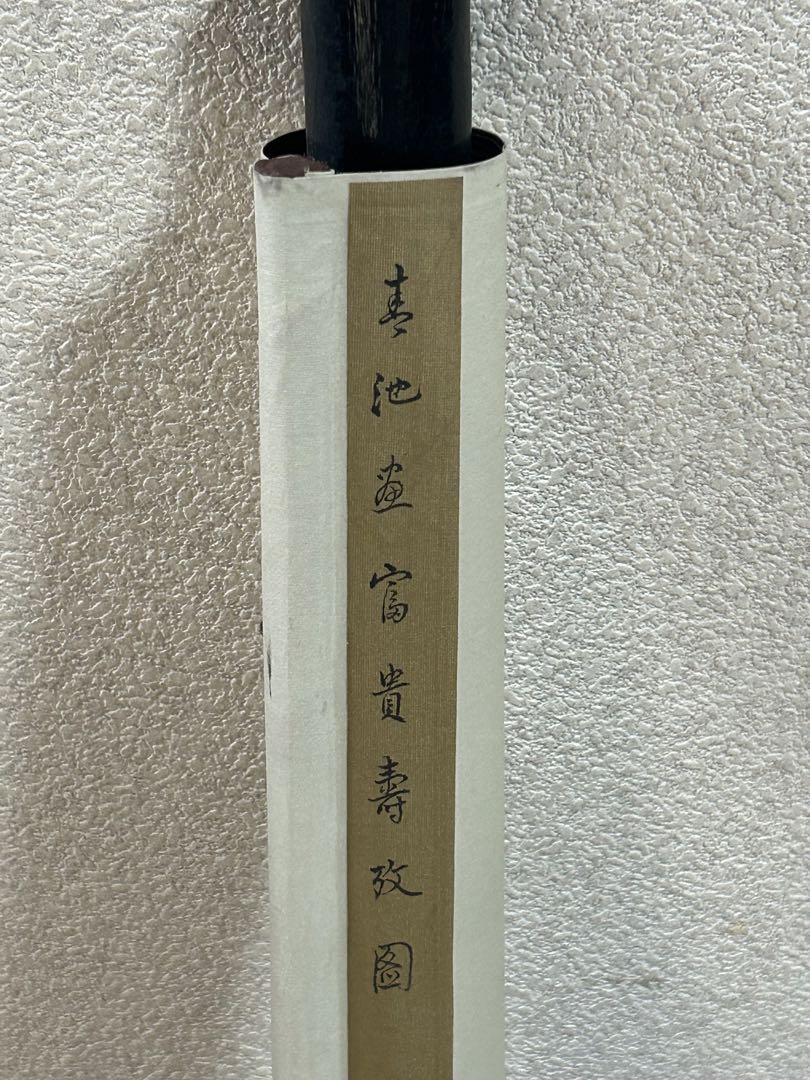 春池畫富貴壽攷圖